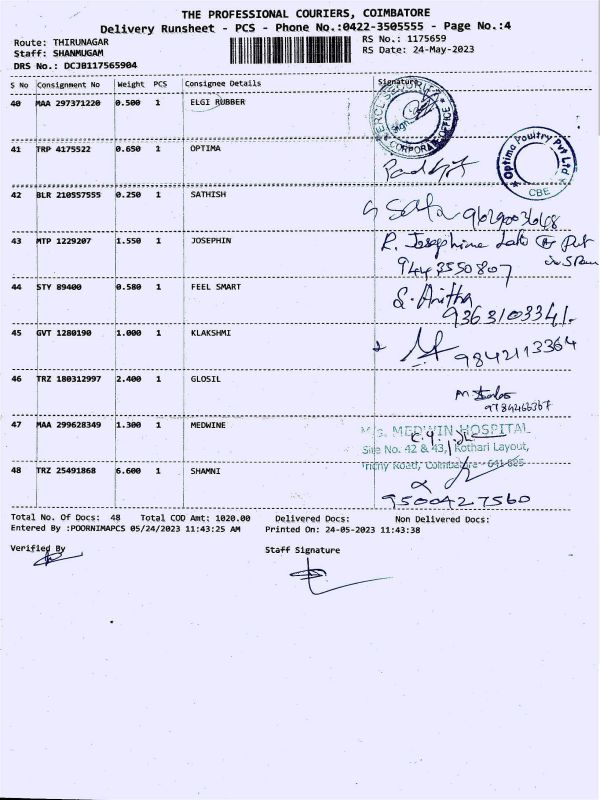 THE PROFESSIONAL COURIERS, COIMBATORE
Delivery Runsheet - PCS - Phone No.:0422-3505555 - Page No.:4
Route: THIRUNAGAR
RS No.: 1175659
Staff: SHANMUGAM
RS Date: 24-May-2023
DRS No.: DCJB117565904
S No Consignment No Weight PCS Consignee Details Signature
40 MAA 297371220 0.500 1 ELGI RUBBER
CORPORATE OFFICE
41 TRP 4175522 0.650 1 OPTIMA
Optima Poultry Pvt Ltd
CBE
42 BLR 210557555 0.250 1 SATHISH
9629003668
43 MTP 1229207 1.550 1 JOSEPHIN
R. Josephine
9443550807
44 STY 89400 0.580 1 FEEL SMART
S. Anitha
9363103341.
45 GVT 1280190 1.000 1 KLAKSHMI
9842113364
46 TRZ 180312997 2.400 1 GLOSIL
9789266367
47 MAA 299628349 1.300 1 MEDWINE
M/s. MEDWIN HOSPITAL
Site No. 42 & 43, Kothari Layout,
Trichy Road, Coimbatore
48 TRZ 25491868 6.600 1 SHAMNI
9500427560
Total No. Of Docs: 48 Total COD Amt: 1020.00 Delivered Docs: Non Delivered Docs:
Entered By :POORNIMAPCS 05/24/2023 11:43:25 AM Printed On: 24-05-2023 11:43:38
Verified By Staff Signature